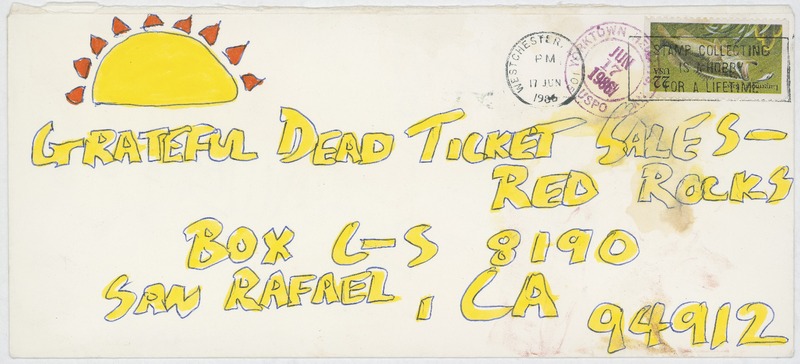 WESTCHESTER,
PM
17 JUN
1986
YORKTOWN
JUN
17
1986
USPO
STAMP COLLECTING
IS A HOBBY
FOR A LIFETIME
22
USA
GRATEFUL DEAD TICKET SALES–
RED ROCKS
BOX C-S 8190
SAN RAFAEL, CA
94912